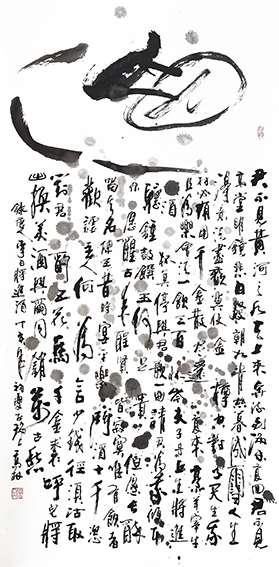 君不見黃河之水天上來奔流到海不復回君不見
高堂明鏡悲白髮朝如青絲暮成雪人生
得意須盡歡莫使金樽空對月天生我
材必有用千金散盡還復來烹羊宰牛
且為樂會須一飲三百杯岑夫子丹丘生將進
酒杯莫停與君歌一曲請君為我傾耳
聽鐘鼓饌玉何足貴但願長醉
不願醒古來聖賢皆寂寞惟有飲者
留其名陳王昔時宴平樂斗酒十千恣
歡謔主人何為言少錢徑須沽取
對君酌五花馬千金裘呼兒將
出換美酒與爾同銷萬古愁
錄唐人李白將進酒丁亥年初夏